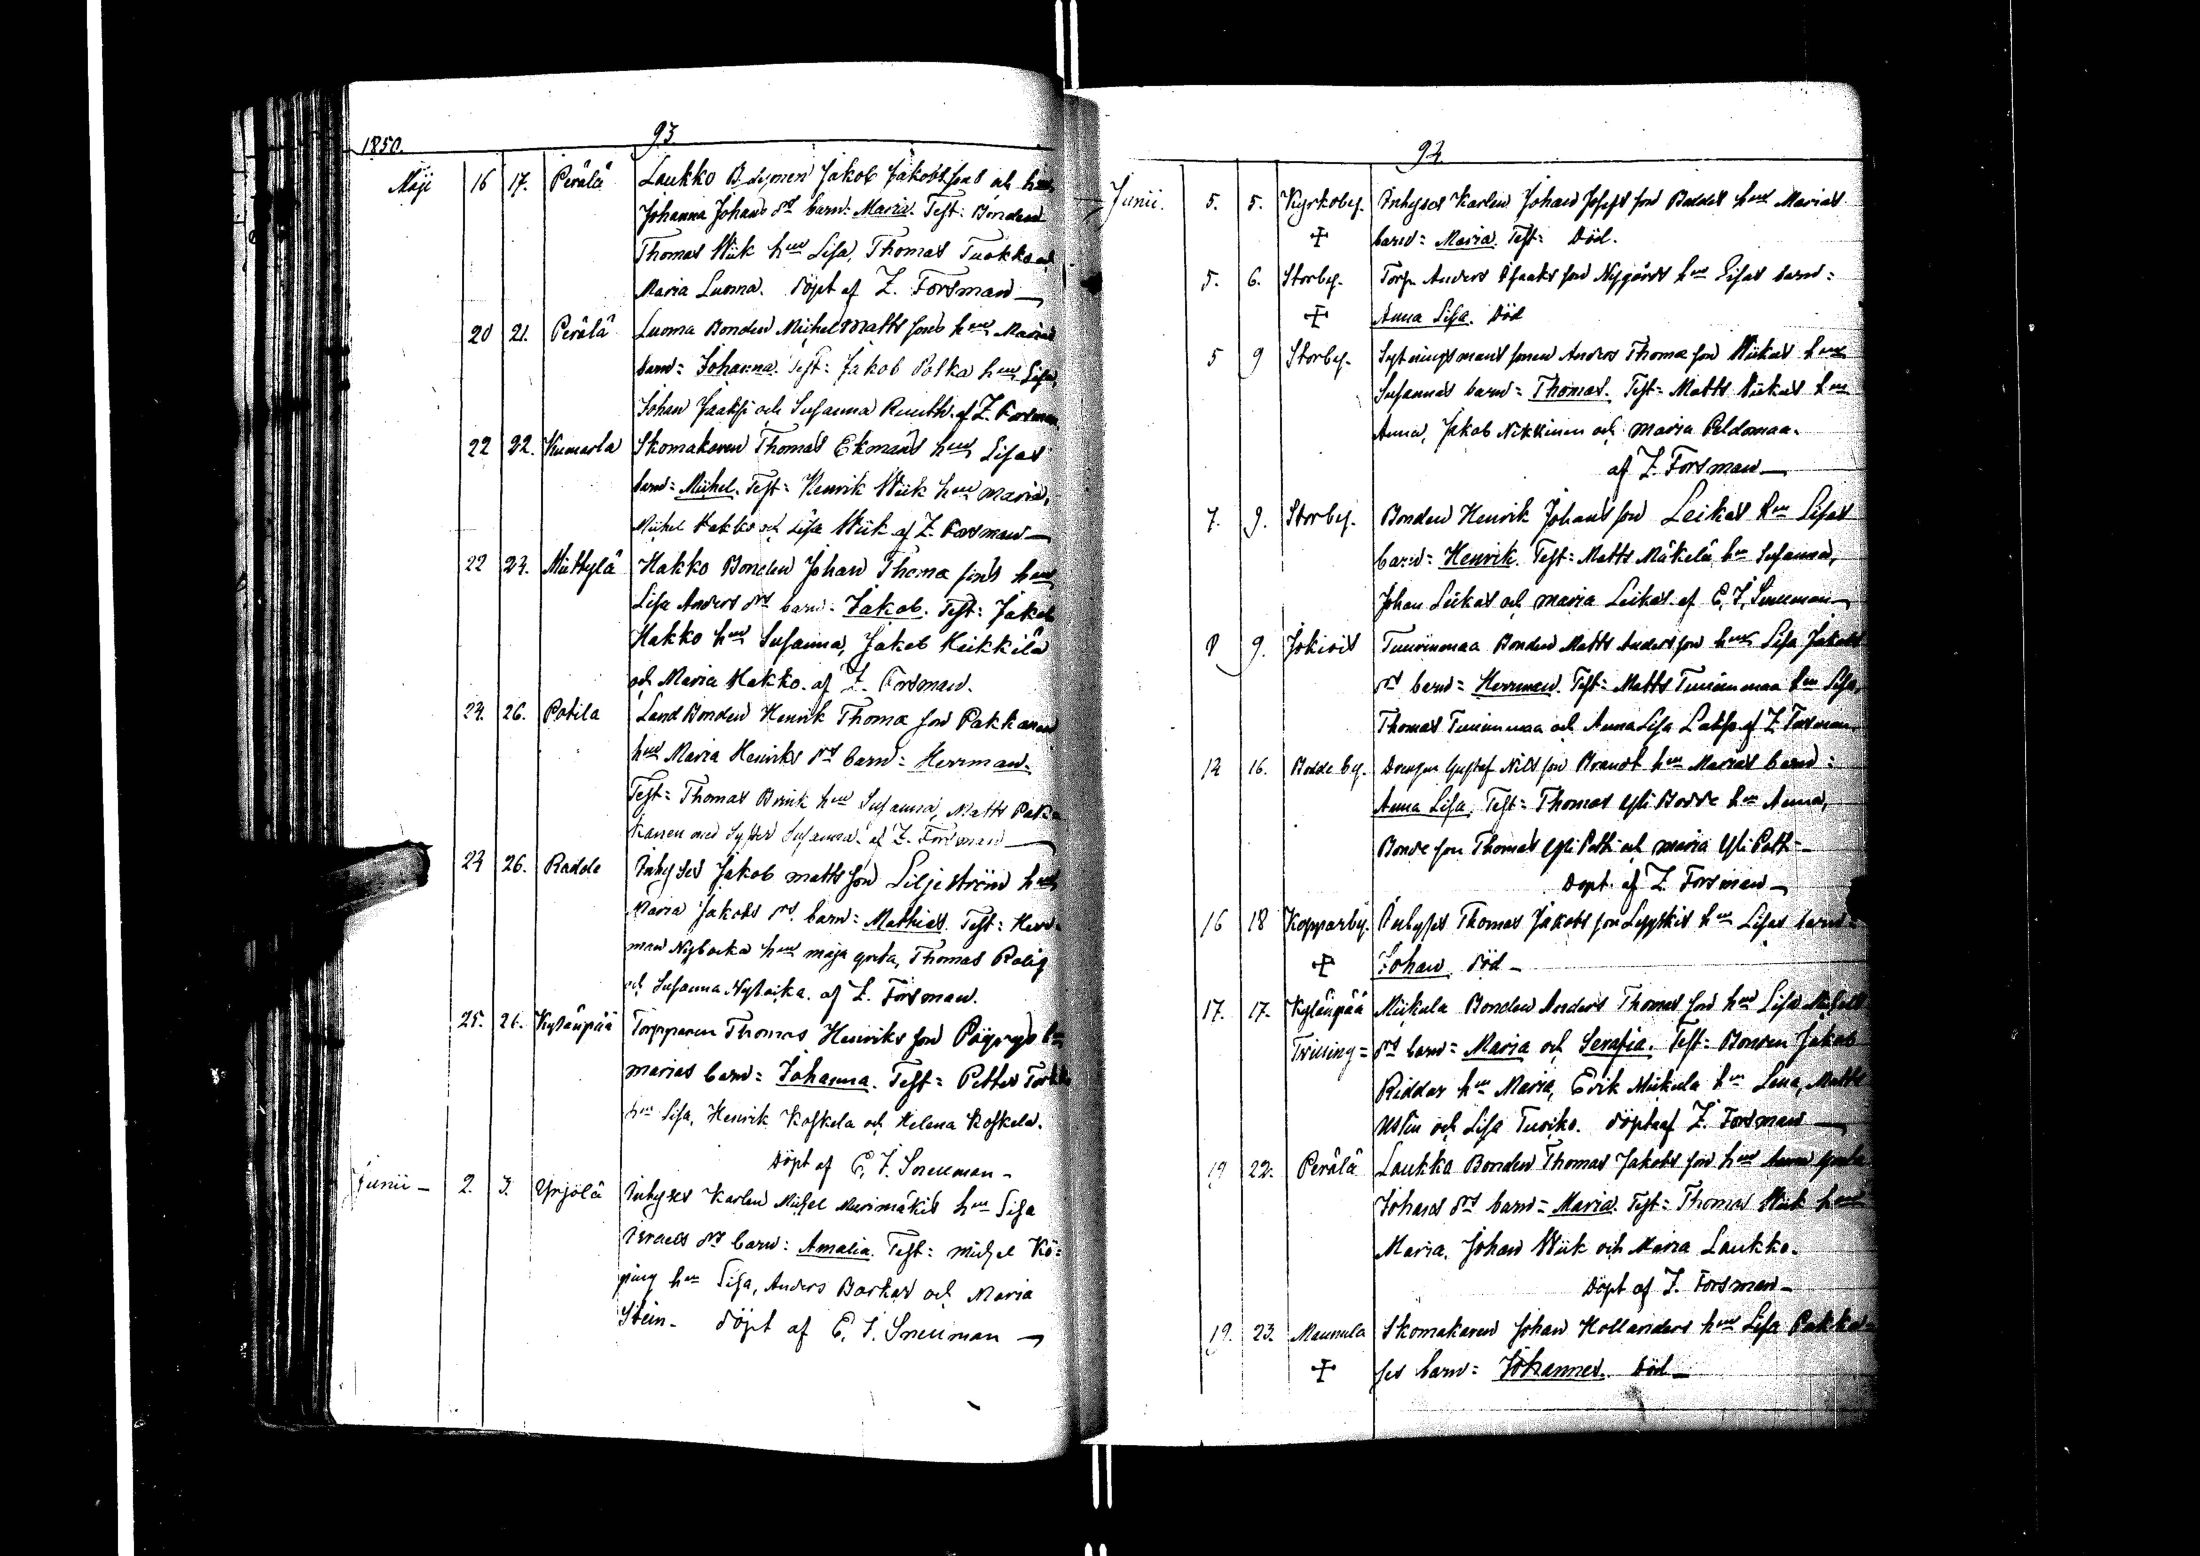 93
1850.
Maji 16 17. Perälä Laukko B dymen Jakob Jakobs sons och hus
Johanna Johans drs barn: Maria. Test: Bonden
Thomas Wiik hru Lisa, Thomas Tuokko och
Maria Luoma. döpt af Z. Forsman
20 21. Perälä Luoma Bonden Michel Matts sons hru Marias
barn: Johanna. Test: Jakob Polka hru Lisa,
Johan Jaaksi och Susanna Ruuth. af Z. Forsman
22 22. Kumarla Skomakaren Thomas Ekmans hru Lisas
barn: Michel. Test: Henrik Wiik hru Maria,
Michel Hakko och Lisa Wiik af Z. Forsman
22 24. Miettylä Hakko Bonden Johan Thoma sons hru
Lisa Anders drs barn: Jakob. Test: Jakob
Hakko hru Susanna, Jakob Heikkilä
och Maria Hakko. af Z. Forsman.
24. 26. Potila Land Bonden Henrik Thoma son Pakkanen
hru Maria Henriks drs barn: Herrman.
Test: Thomas hru Susanna, Matts Pak-
kanen med Syster Susanna. af Z. Forsman
24 26. Radde Inhyses Jakob Matts son Liljeström hru
Maria Jakobs drs. barn: Mathias. Test: Herr-
man Nybacka hru Maja Greta, Thomas Rolig
och Susanna Nybacka. af Z. Forsman.
25. 26. Kyläupää Torpparen Thomas Henriks son Pöyryä hru
Marias barn: Johanna. Test: Petter
hru Lisa, Henrik Koskela och Helena Koskela.
Döpt af E. J. Snellman
Junii 2. 3. Yrjölä Inhyses Karlen Michel Murimäkis hru Lisa
Israels drs barn: Amalia. Test: Michel Kö-
ping hru Lisa, Anders Barkar och Maria
Stein. döpt af E. J. Snellman
94
Junii. 5. 5. Kyrkoby. Inhyses Karlen Johan Josefs son Baddes hru Marias
barn: Maria. Test: Död.
5. 6. Storby. Torp. Anders Isaaks son Nygårds hru Lisas barn:
Anna Lisa. Död
5 9 Storby. Sytningsmans sonen Anders Thoma son Wiikas hru
Susannas barn: Thomas. Test: Matts Wiikas hru
Anna, Jakob Nikkinen och Maria Peldomaa.
af Z. Forsman
7. 9. Storby. Bonden Henrik Johans son Leikas hru Lisas
barn: Henrik. Test: Matts Mäkelä hru Susanna,
Johan Leikas och Maria Leikas. af E. J. Snellman
8 9. Jokivis Tuurinmaa Bonden Matts Anders son hru Lisa Jakobs
drs barn: Herrman. Test: Matts Tuurinmaa hru Lisa,
Thomas Tuurinmaa och Anna Lisa af Z. Forsman.
14 16. Bodde by. Drengen Gustaf Nils son Brandt hru Marias barn:
Anna Lisa. Test: Thomas Yli Bodde hru Anna,
Bonde son Thomas Yli Potti och Maria Yli Potti
Döpt. af Z. Forsman
16 18 Kopparby. Inhyses Thomas Jakobs son Leppikis hru Lisas barn
Johan. död
17. 17. Kyläupää Miekula Bonden Anders Thomas son hru Lisa Michels
Trilling= drs barn: Maria och Serafia. Test: Bonden Jakob
Riddar hru Maria, Erik Miekula hru Lena, Matts
och Lisa Turiko. döpta af Z. Forsman
19 22. Perälä Laukko Bonden Thomas Jakobs son hru Anna Greta
Johans drs barn: Maria. Test: Thomas Wiik hru
Maria, Johan Wiik och Maria Laukko.
Döpt af Z. Forsman
19. 23. Maunula Skomakaren Johan Hollanders hru Lisa
ses barn: Johannes. Död